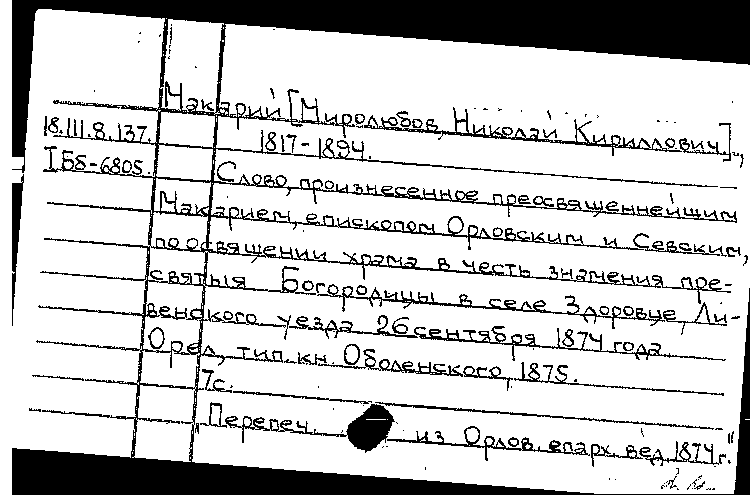 Макарий [Миролюбов, Николай Кириллович],
18.III.8.137. 1817-1894.
I Бб-6805. Слово, произнесенное преосвященнейшим
Макарием, епископом Орловским и Севским,
по освящении храма в честь знамения пре-
святыя Богородицы в селе Здоровце, Ли-
венского уезда 26 сентября 1874 года.
Орел, тип. кн. Оболенского, 1875.
7с.
"Перепеч. из Орлов. епарх. вед. 1874г."